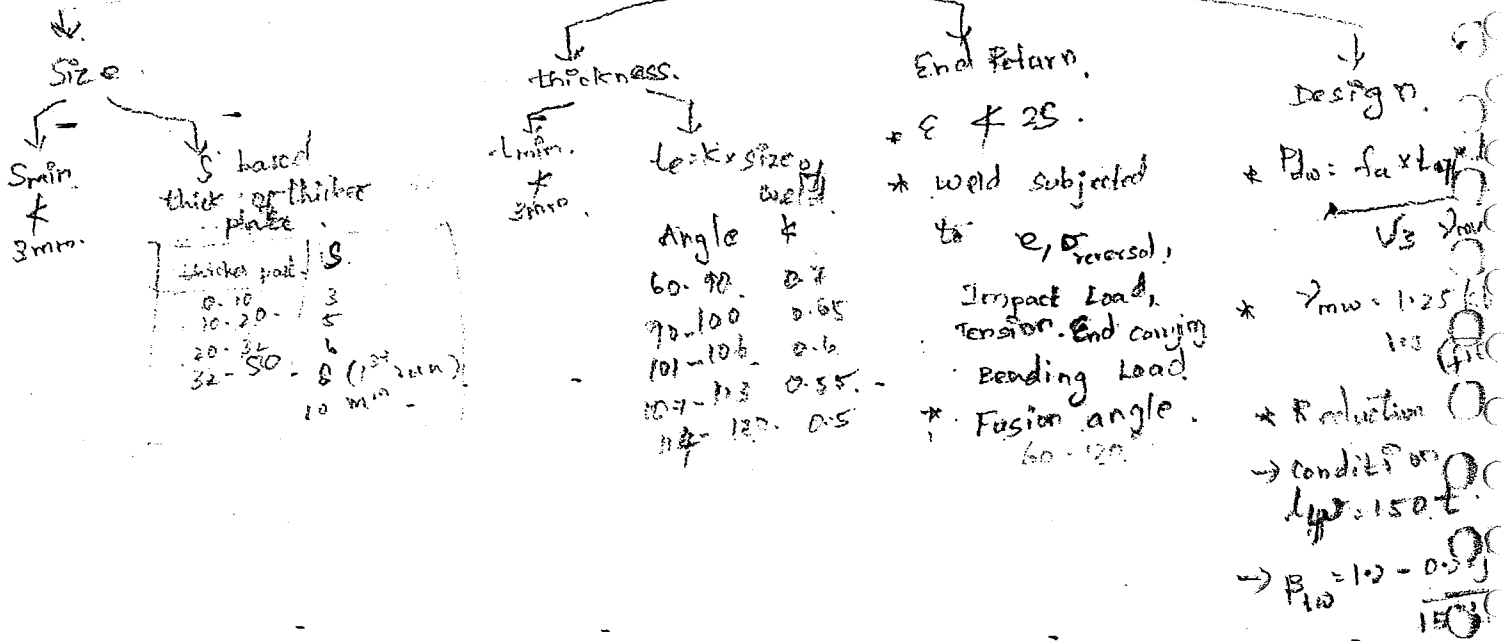 Size.
Smin
≮
3mm.
S based
thick of thicker
plate.
thicker part S
0-10 3
10-20 - 5
20-32 6
32-50 - 8 (1st run)
10 min -
thickness.
tmin.
≮
3mm.
te = K × size of
weld
Angle K
60-90 0.7
90-100 0.65
101-106 0.6
107-113 0.55.
114-120. 0.5
End Return.
* ≮ 2S.
* weld subjected
to e, σreversal,
Impact Load,
Tension End carrying
Bending Load
* Fusion angle.
60-120
Design.
* Pdw =
√3
* γmw = 1.25
* Reduction
→ condition
= 150 t
→ βlw = 1.2 -